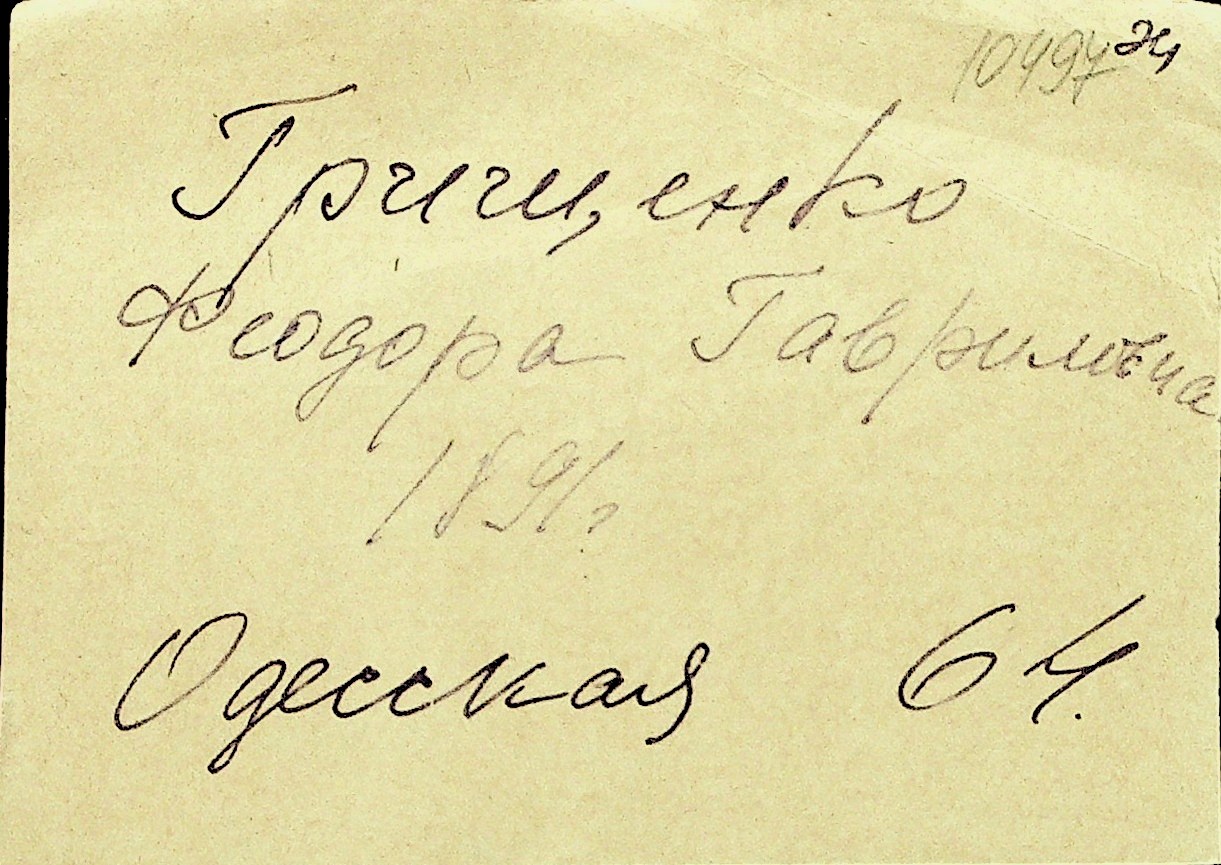 10497 24
Грищенко
Феодора Гавриловна
1891г
Одесская 64.